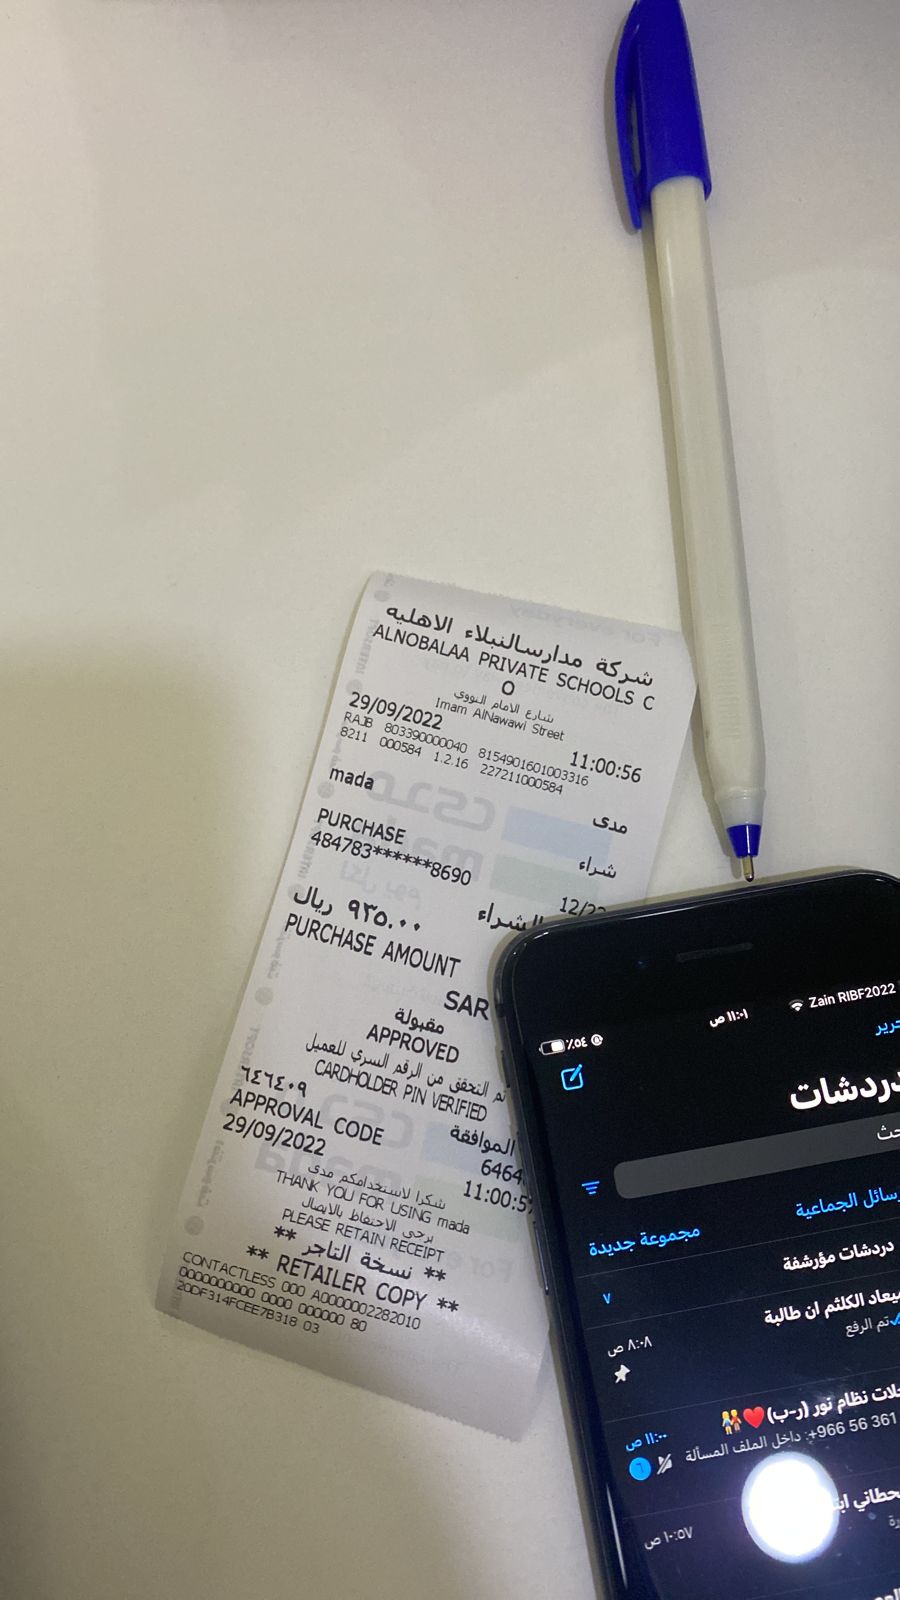 شركة مدارسالنبلاء الاهليه
ALNOBALAA PRIVATE SCHOOLS C
O
شارع الامام النووي
Imam AlNawawi Street
29/09/2022 11:00:56
RAJB 803390000040 8154901601003316
8211 000584 1.2.16 227211000584
mada مدى
PURCHASE شراء
484783******8690 12/22
الشراء ٩٣٥.٠٠ ريال
PURCHASE AMOUNT
SAR
مقبولة
APPROVED
تم التحقق من الرقم السري للعميل
CARDHOLDER PIN VERIFIED
الموافقة ٦٤٦٤٠٩
APPROVAL CODE 6464
29/09/2022 11:00:5
شكرا لاستخدامكم مدى
THANK YOU FOR USING mada
يرجى الاحتفاظ بالايصال
PLEASE RETAIN RECEIPT
** نسخة التاجر **
** RETAILER COPY **
CONTACTLESS 000 A0000002282010
0000000000 0000 000000 80
20DF314FCEE7B318 03
Zain RIBF2022
١١:٠١ ص
٪٥٤
مجموعة جديدة
دردشات مؤرشفة
٧
الكلثم ان طالبة
٨:٠٨ ص
تم الرفع
نظام نور (ر-ب)❤️👫
١١:٠٠ ص
+966 56 361: داخل الملف المسألة
٦
١٠:٥٧ ص